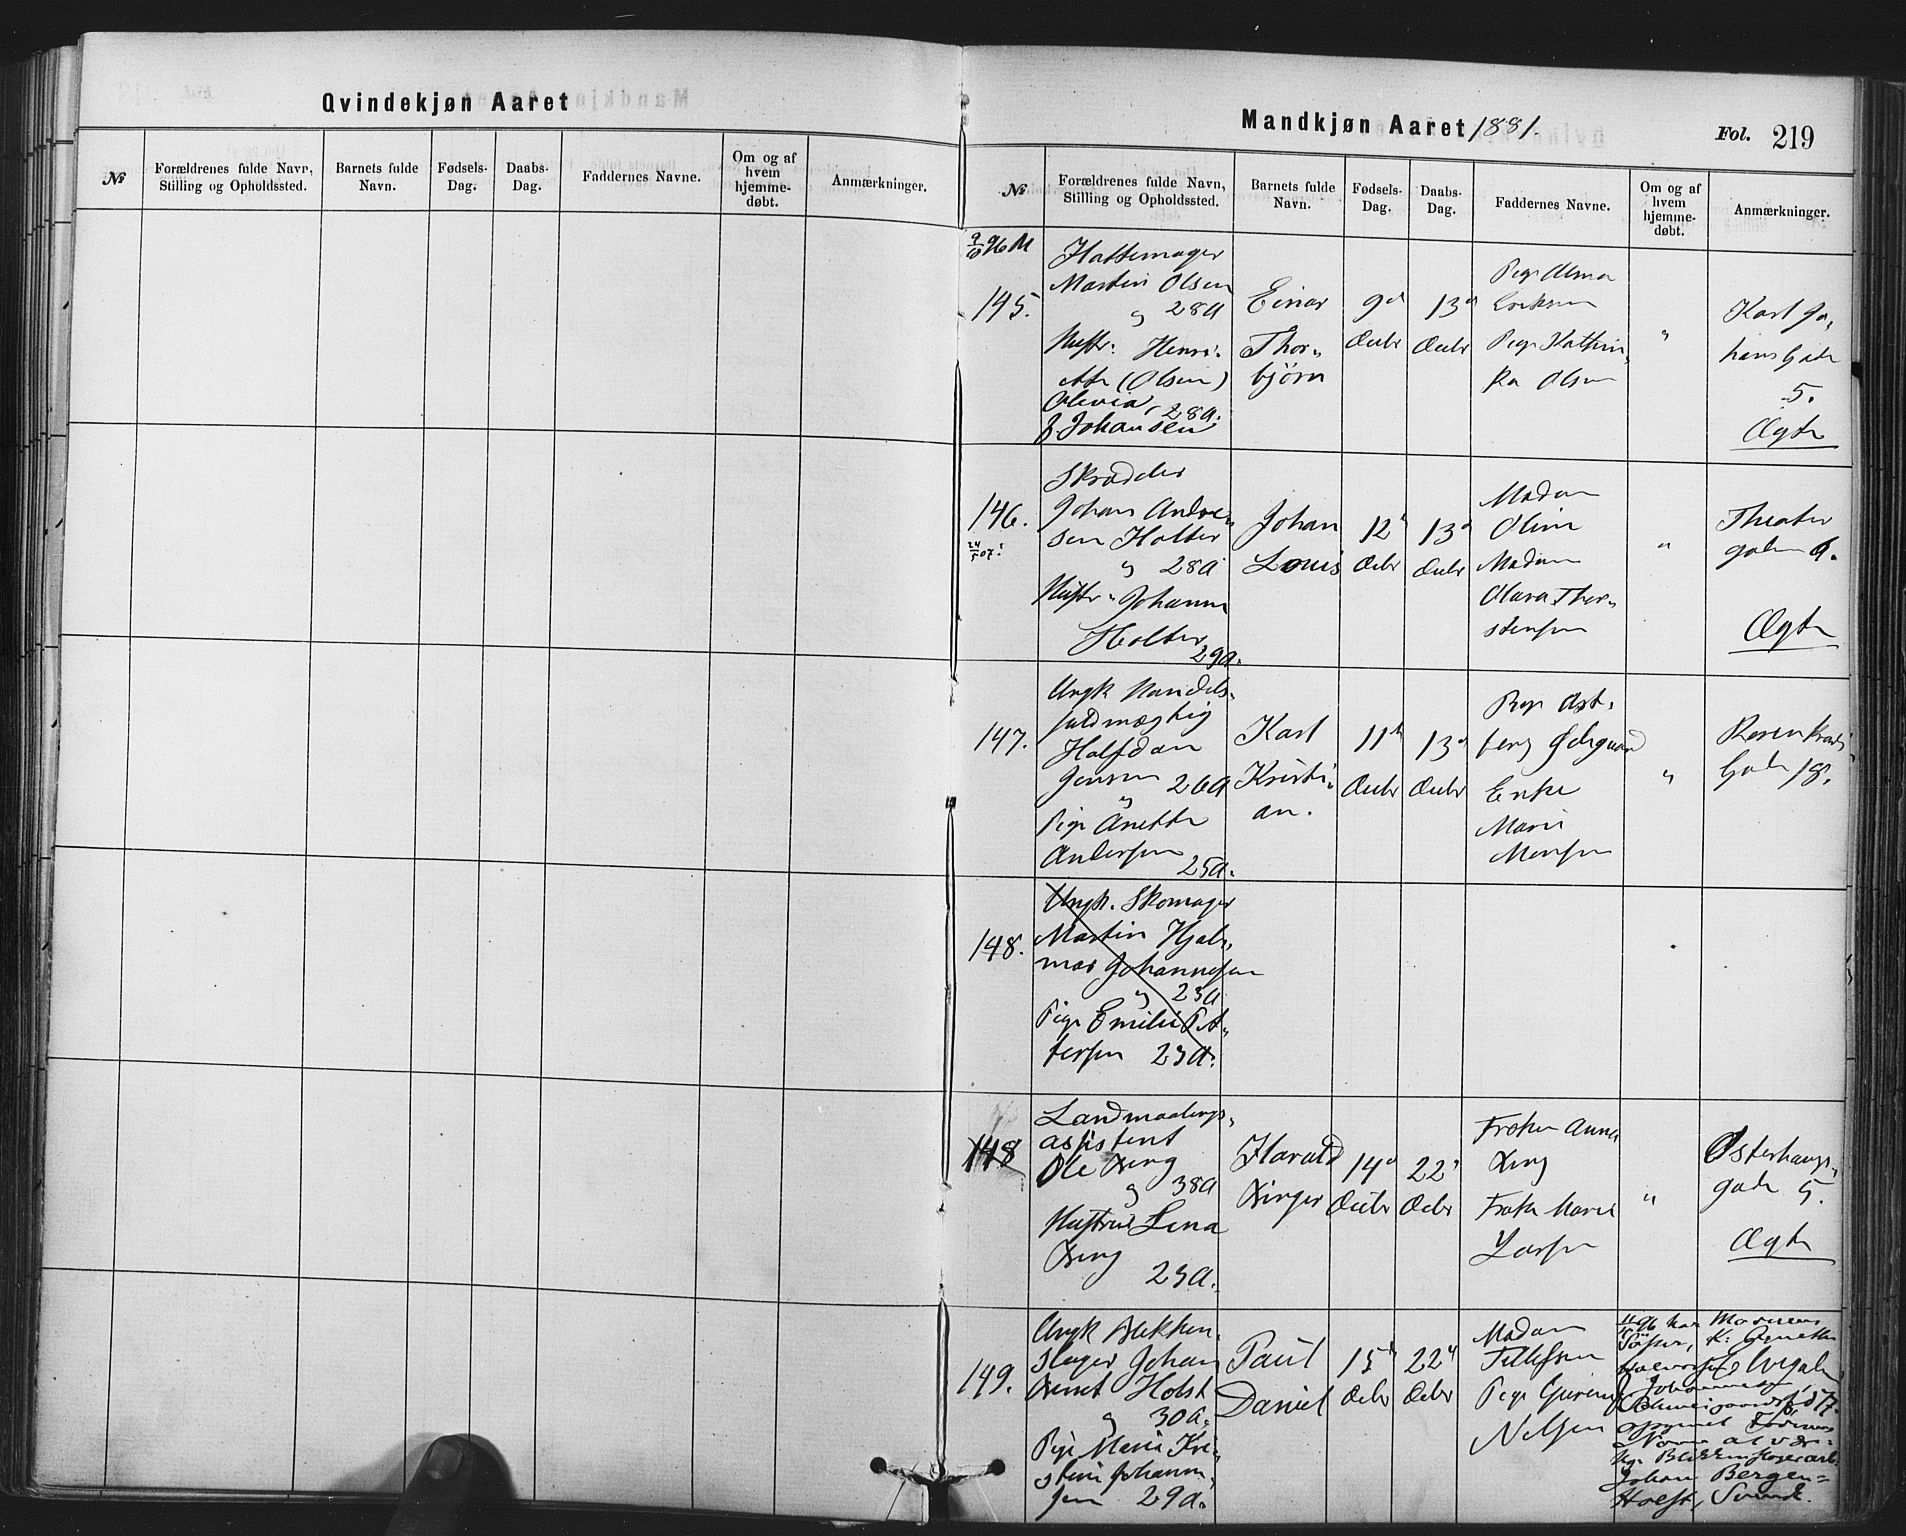 Qvindekjøn Aaret
№
Forældrenes fulde Navn,
Stilling og Opholdssted.
Barnets fulde
Navn.
Fødsels-
Dag.
Daabs-
Dag.
Faddernes Navne.
Om og af
hvem
hjemme-
døbt.
Anmærkninger.
Mandkjøn Aaret 1881.
Fol. 219
№
Forældrenes fulde Navn,
Stilling og Opholdssted.
Barnets fulde
Navn.
Fødsels-
Dag.
Daabs-
Dag.
Faddernes Navne.
Om og af
hvem
hjemme-
døbt.
Anmærkninger.
145.
Hattemager
Martin Olsen
og 28 A
Hustr: Henri-
ette (Olsen)
Olevia, 28 A.
f. Johansen
Einar
Thor-
bjørn
9d
Decbr
13d
Decbr
Pige Alma
Eriksen
Pige Kathin-
ka Olsen
"
Karl Jo-
hans Gade
5.
Ægte
146.
24/5 07
Skrædder
Johan Andre-
sen Holter
og 28 A
Hustr. Johanne
Holter
29 A.
Johan
Louis
12d
Decbr
13d
Decbr
Madam
Oline
Madam
Olava Thor-
stensen
"
Theater
gaden 9.
Ægte
147.
Ungk Handels-
fuldmægtig
Halfdan
Jensen 26 A
og
Pige Anette
Andersen
25 A.
Karl
Kristi-
an.
11d
Decbr
13d
Decbr
Pige Ast-
Enke
Marie
Monsen
"
Rosenkrands
Gade 18.
148.
Ungk. Skomager
Martin Hjal-
mar Johannesen
og 23 A
Pige Emilie Pet-
tersen 23 A.
148
Landmaalings-
assistent
Ole Xing
og 38 A
Hustrue Lena
Xing
23 A.
Harald
Xinger
14d
Decbr
22d
Decbr
Frøken Anna
Xing
Frøken Marie
Larsen
"
Østerhaugs-
gade 5.
Ægte
149.
Ungk Blikken-
slager Johan
Bernt Holst
og 30 A.
Pige Maria Kri-
stine Johanne-
sen 29 A.
Paul
Daniel
15d
Decbr
22d
Decbr
Madam
Tellefsen
Pige
Nelsen
96 har Moderens
Søster, K: Agnethe
Halvorsen
Johannesen
Schweigaardsgd 17.
opgivet Faderens
Navn at være
Blikkenslagerarb.
Johan Bergen-
Holst, Svensk.